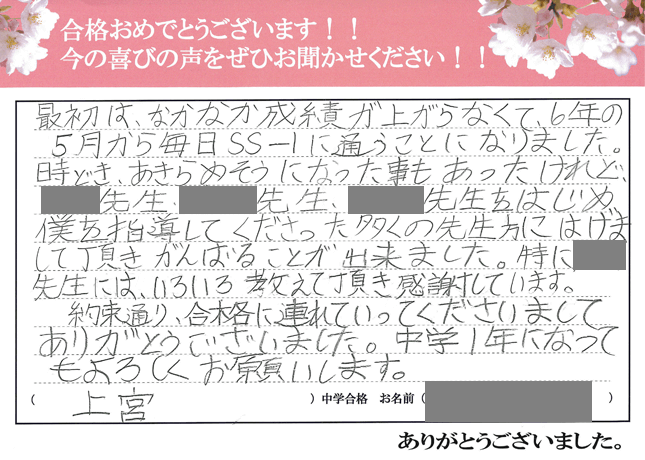 合格おめでとうございます！！
今の喜びの声をぜひお聞かせください！！
最初は、なかなか成績が上がらなくて、6年の
5月から毎日SS-1に通うことになりました。
時どき、あきらめそうになった事もあったけれど、
先生、先生、先生をはじめ
僕を指導してくださった多くの先生方にはげま
して頂きがんばることが出来ました。特に
先生には、いろいろ教えて頂き感謝しています。
約束通り、合格に連れていってくださいまして
ありがとうございました。中学1年になって
もよろしくお願いします。
（上宮）中学合格 お名前（ ）
ありがとうございました。